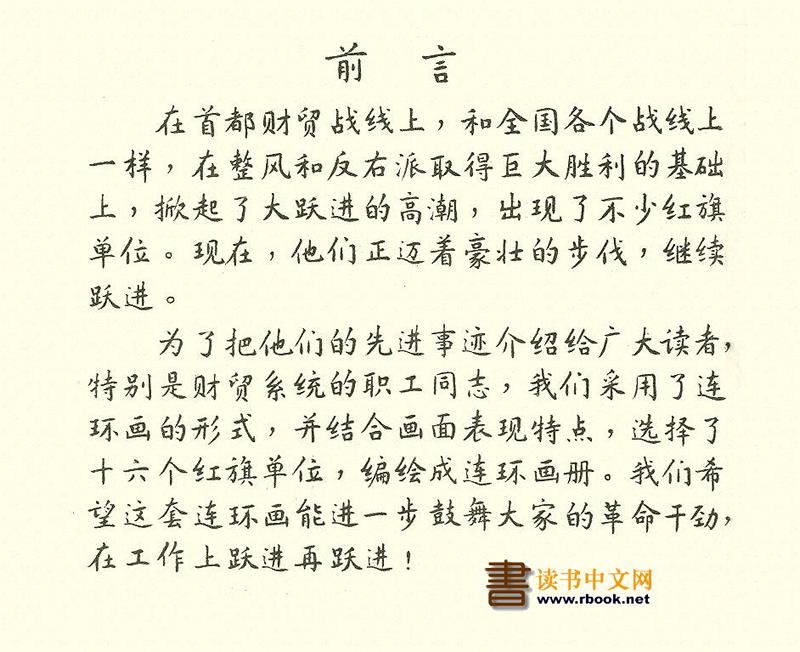 前言
在首都财贸战线上，和全国各个战线上
一样，在整风和反右派取得巨大胜利的基础
上，掀起了大跃进的高潮，出现了不少红旗
单位。现在，他们正迈着豪壮的步伐，继续
跃进。
为了把他们的先进事迹介绍给广大读者，
特别是财贸系统的职工同志，我们采用了连
环画的形式，并结合画面表现特点，选择了
十六个红旗单位，编绘成连环画册。我们希
望这套连环画能进一步鼓舞大家的革命干劲，
在工作上跃进再跃进！
書 读书中文网
www.rbook.net